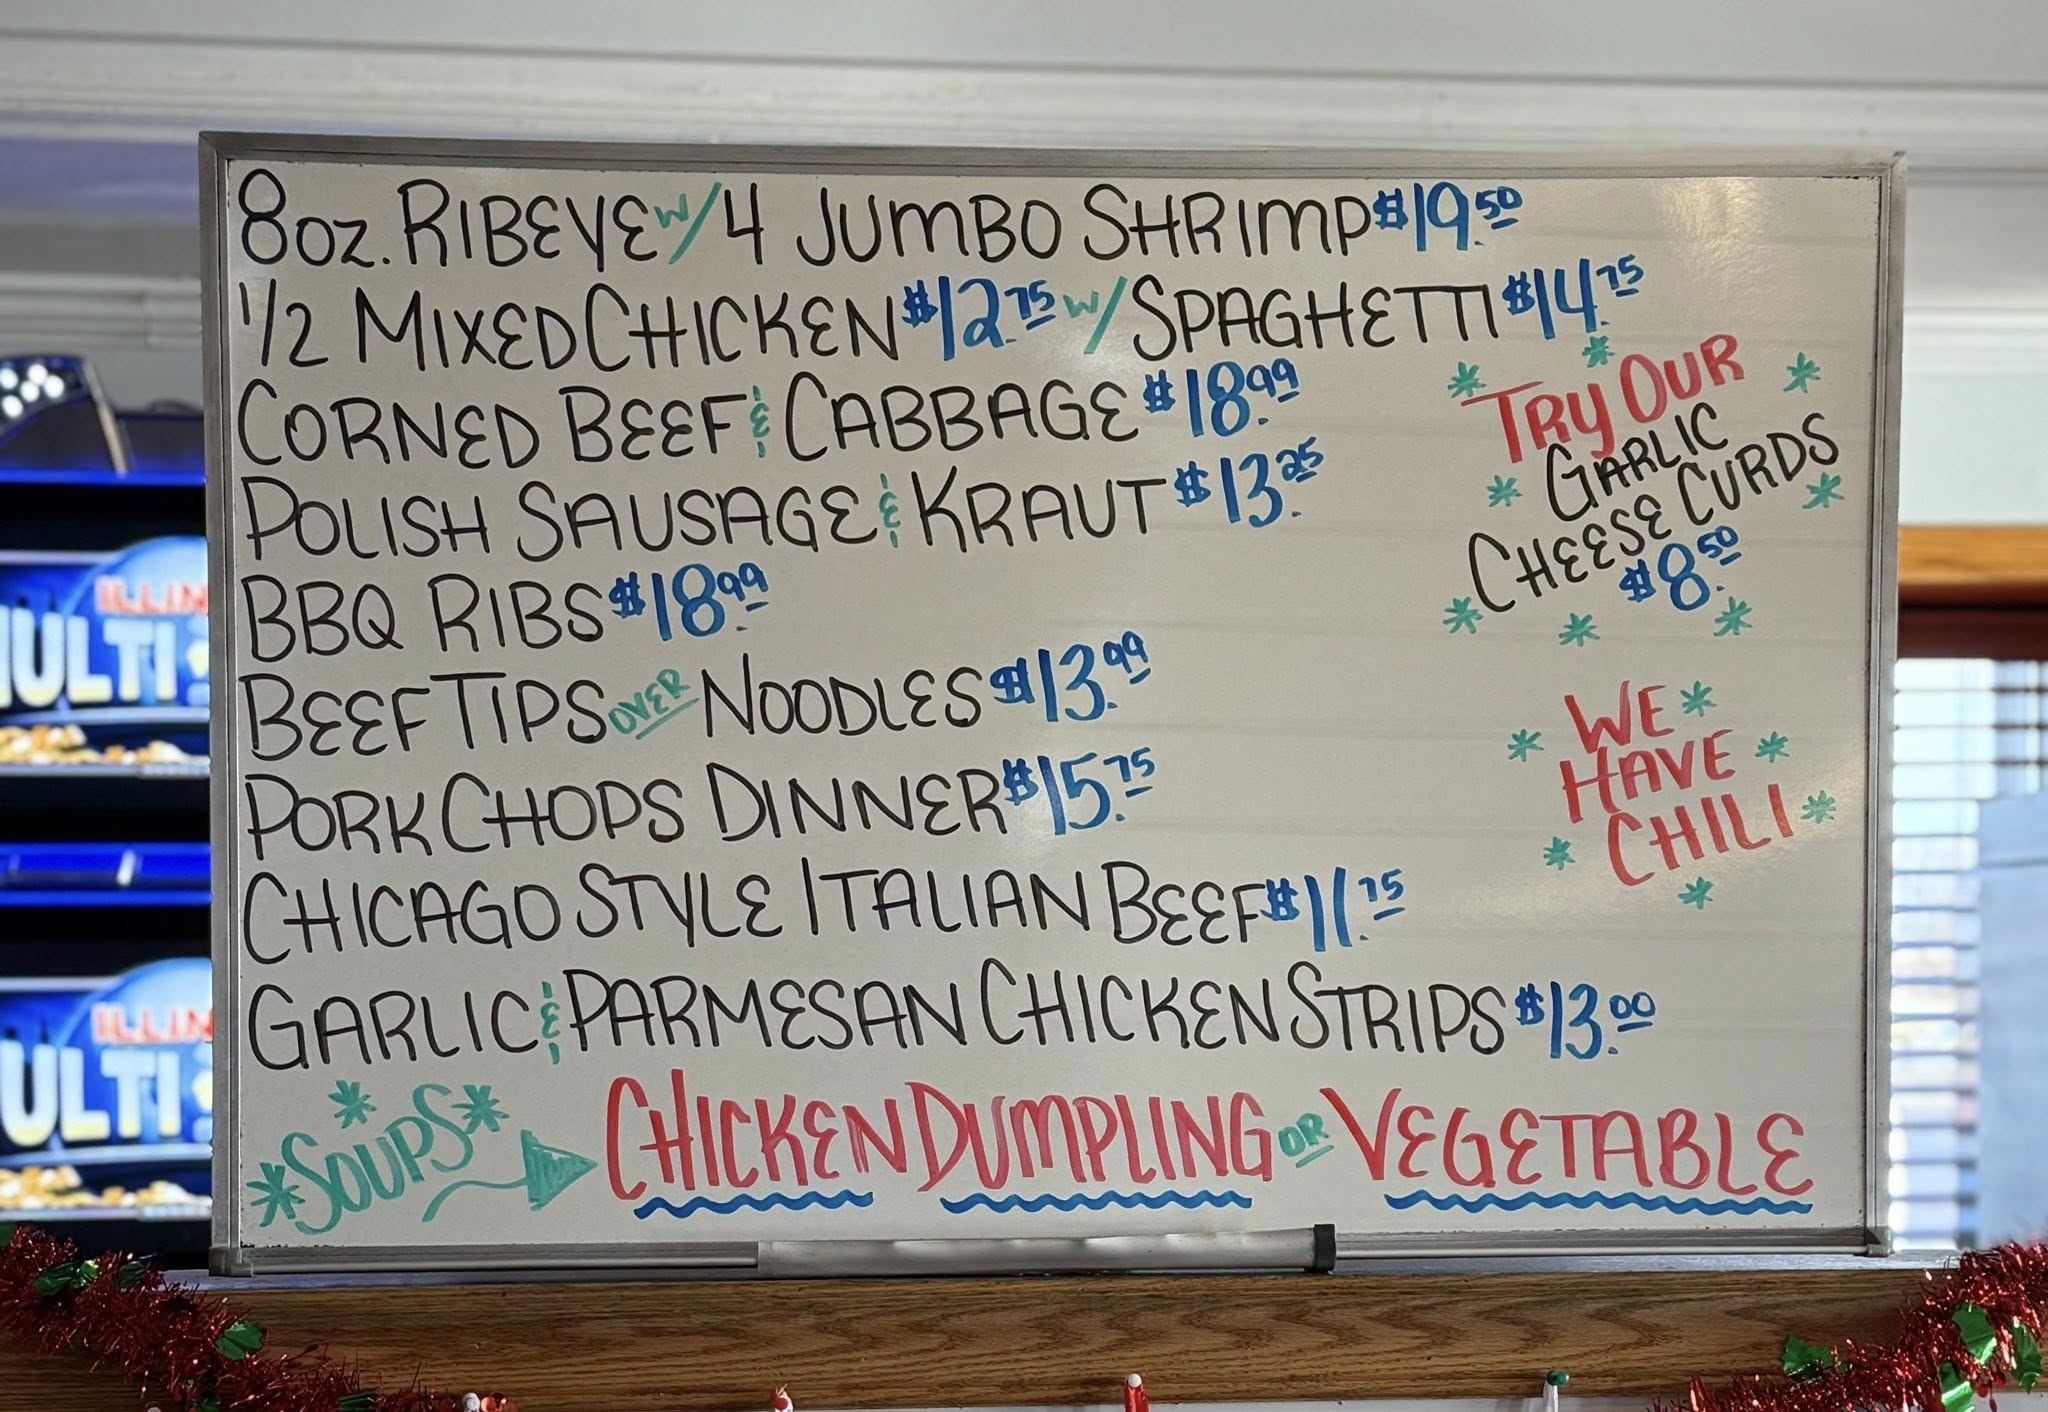 8oz. RIBEYE w/ 4 JUMBO SHRIMP $19.50
1/2 MIXED CHICKEN $12.75 w/ SPAGHETTI $14.75
CORNED BEEF & CABBAGE $18.99
POLISH SAUSAGE & KRAUT $13.25
BBQ RIBS $18.99
BEEF TIPS OVER NOODLES $13.99
PORK CHOPS DINNER $15.75
CHICAGO STYLE ITALIAN BEEF $11.75
GARLIC & PARMESAN CHICKEN STRIPS $13.00
*SOUPS* CHICKEN DUMPLING OR VEGETABLE
TRY OUR
GARLIC
CHEESE CURDS
$8.50
WE
HAVE
CHILI
ILLIN
ULTI
ILLIN
ULTI